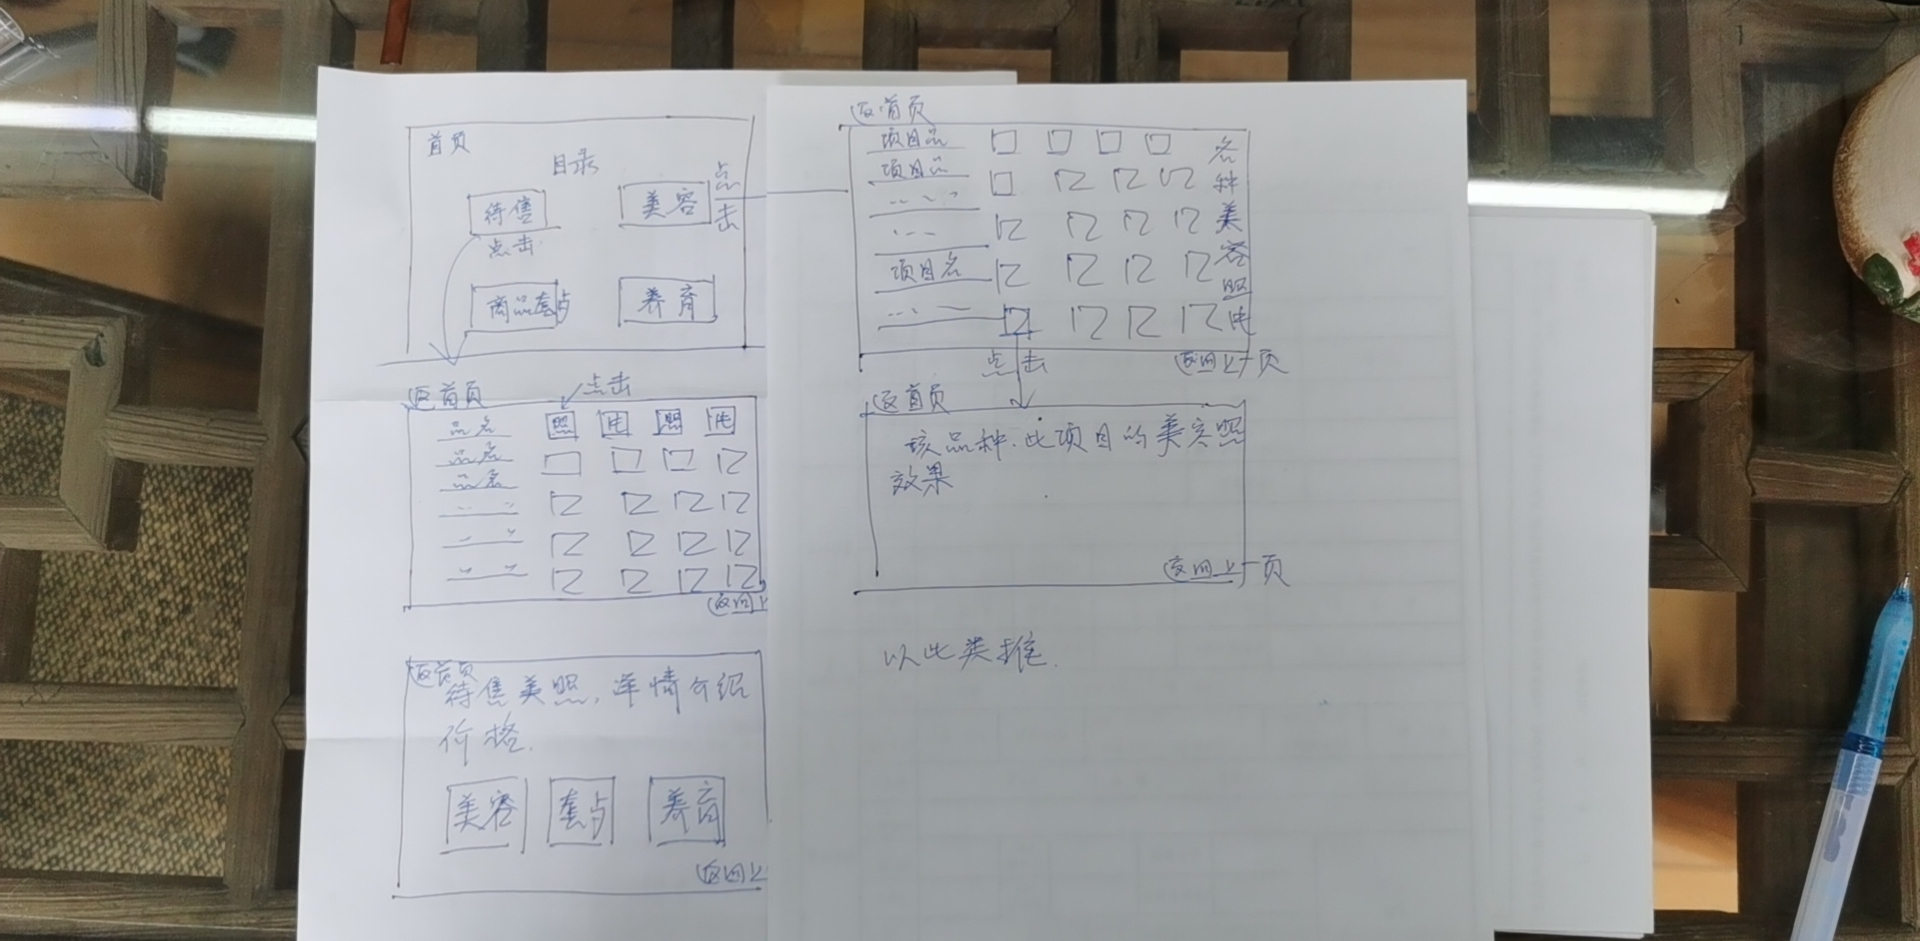 首页
目录
待售
美容
点击
点击
商品套占
养育
返首页
点击
品名
照 片 照 片
品名
品名
返回上
返首页
待售美照,详情介绍
价格.
美容
套占
养育
返回上
返首页
项目品
项目品
项目名
各种美容照片
点击
返回上一页
返首页
该品种.此项目的美容照
效果
返回上一页
以此类推.